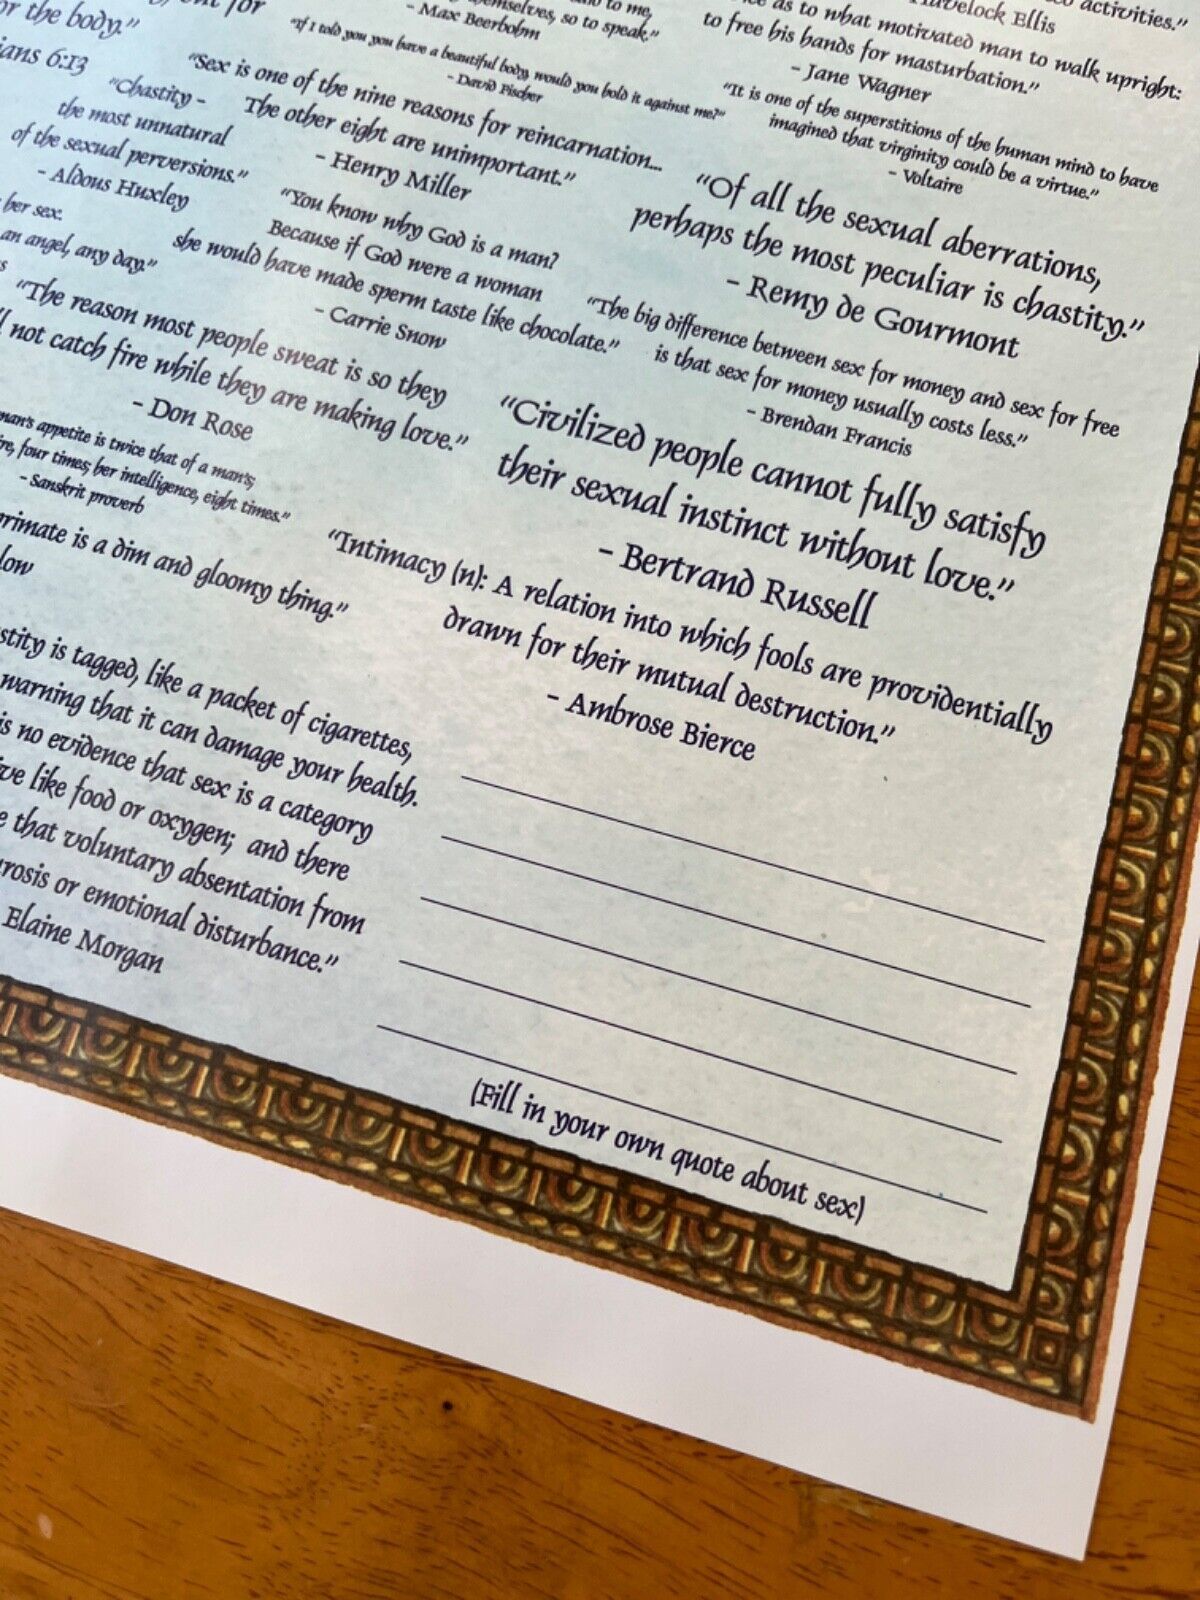 or the body."
ians 6:13
to me,
themselves, so to speak."
- Max Beerbohm
activities."
Havelock Ellis
as to what motivated man to walk upright:
to free his hands for masturbation."
- Jane Wagner
"If I told you you have a beautiful body, would you hold it against me?"
- David Fischer
"Chastity -
the most unnatural
of the sexual perversions."
- Aldous Huxley
"Sex is one of the nine reasons for reincarnation...
The other eight are unimportant."
- Henry Miller
"It is one of the superstitions of the human mind to have
imagined that virginity could be a virtue."
- Voltaire
her sex.
an angel, any day."
"You know why God is a man?
Because if God were a woman
she would have made sperm taste like chocolate."
- Carrie Snow
"Of all the sexual aberrations,
perhaps the most peculiar is chastity."
- Remy de Gourmont
"The reason most people sweat is so they
not catch fire while they are making love."
- Don Rose
"The big difference between sex for money and sex for free
is that sex for money usually costs less."
- Brendan Francis
man's appetite is twice that of a man's;
four times; her intelligence, eight times."
- Sanskrit proverb
"Civilized people cannot fully satisfy
their sexual instinct without love."
- Bertrand Russell
rimate is a dim and gloomy thing."
low
"Intimacy (n): A relation into which fools are providentially
drawn for their mutual destruction."
- Ambrose Bierce
stity is tagged, like a packet of cigarettes,
warning that it can damage your health.
is no evidence that sex is a category
ve like food or oxygen; and there
e that voluntary absentation from
rosis or emotional disturbance."
Elaine Morgan
(Fill in your own quote about sex)